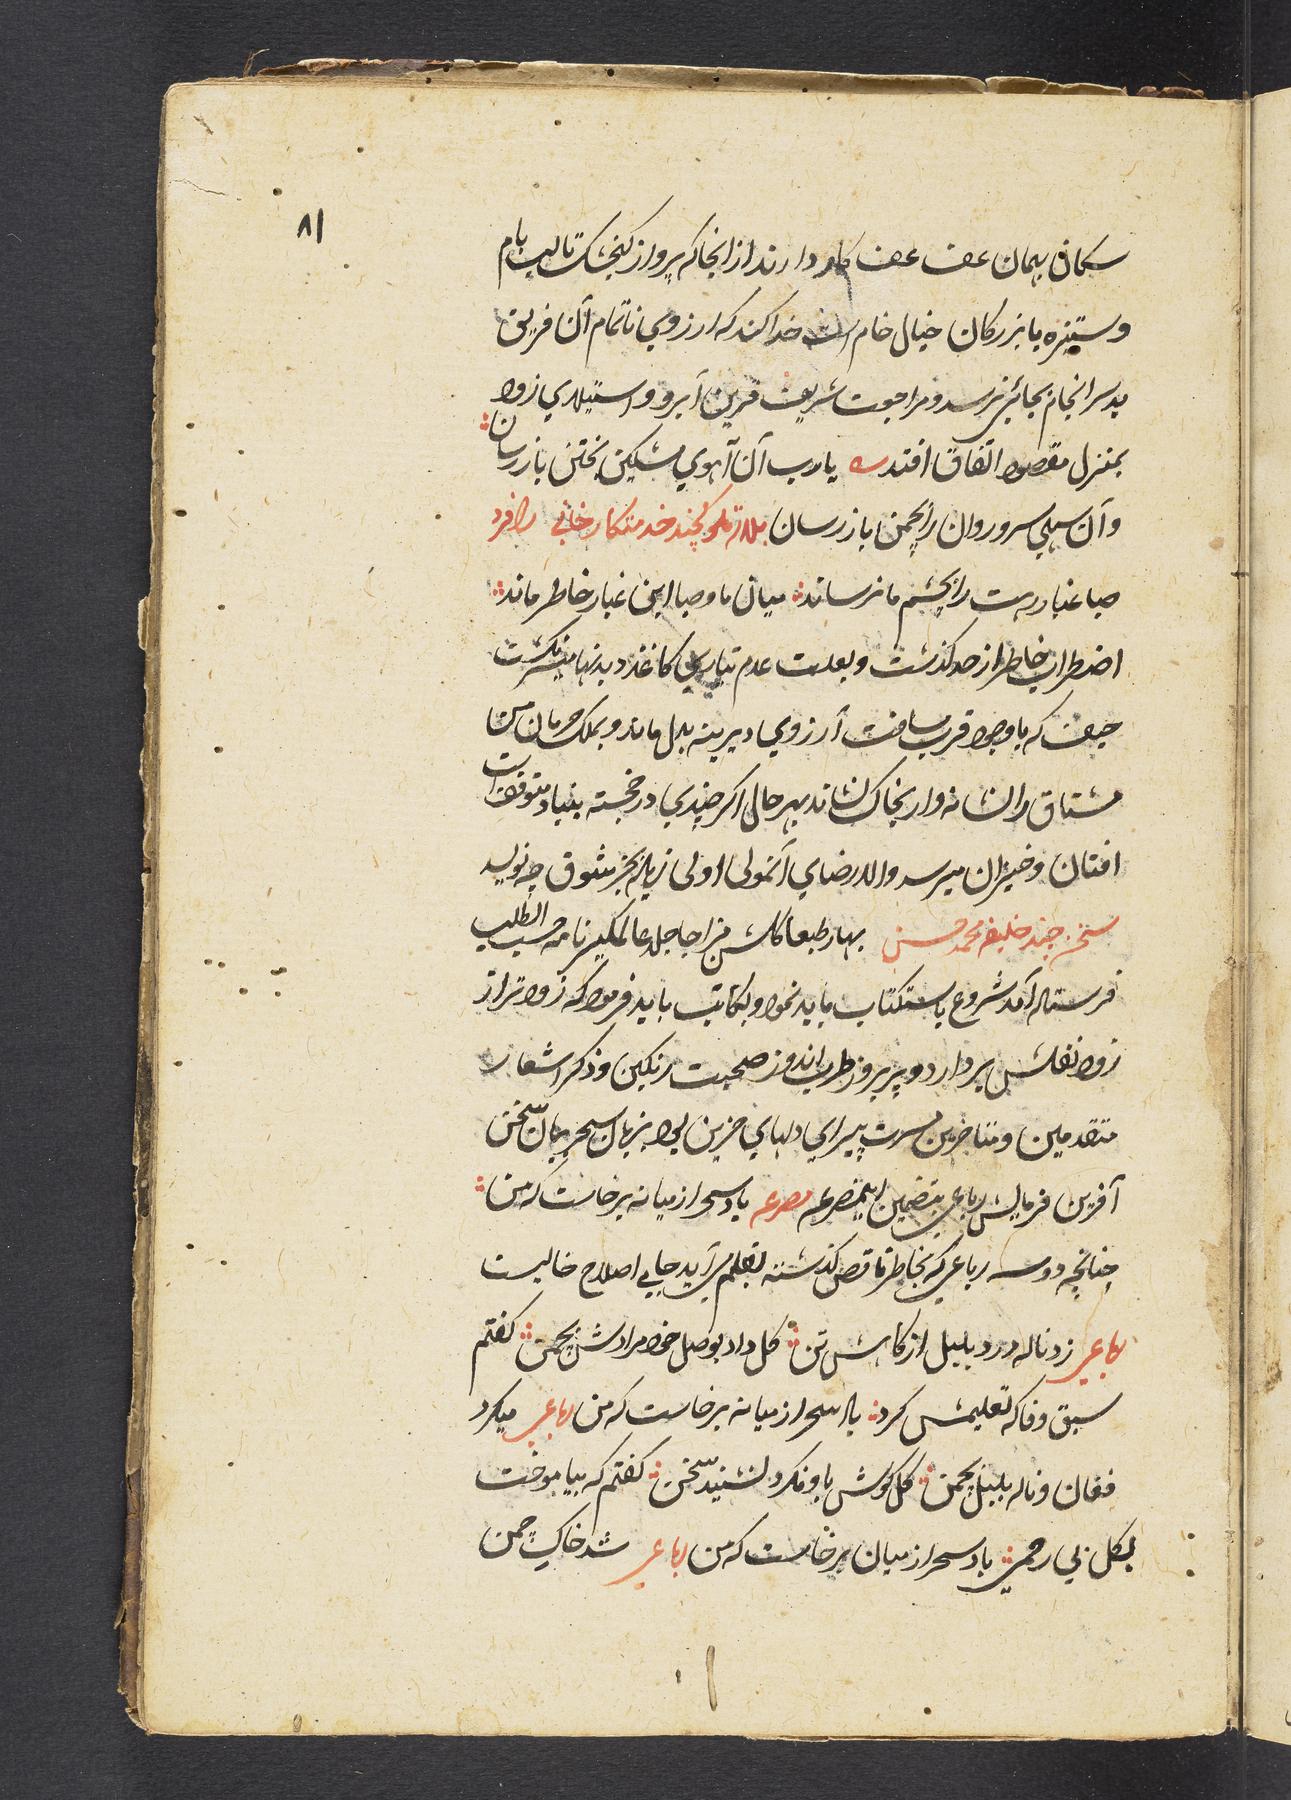 ۸۱
سکان بهمان عف عف کار دارند از انجا که پرواز کنجشک تا لب بام
و ستیزه با بزرکان خیال خام است خدا کند که ارزوي ناتمام آن فریق
بد سرانجام بجائي نرسد و مراجعت شریف قرین آبرو و استیلاي زود
بمنزل مقصود اتفاق افتد یا رب آن آهوي مشکین بختن باز رسان
و آن سهي سرو روان را بچمن باز رسان خدمتکار خاني را فرد
صبا غبار رهت را بچشم ما نرساند میان ما و صبا این غبار خاطر ماند
اضطراب خاطر از حد کذشت و بعلت عدم تیاري کاغذ دیدنها میسر نکشت
حیف که با وجود قرب مسافت آرزوي دیرینه بدل ماند و بملک حرمان من
مشتاق را نشانه وار بخاک نشاند بهر حال اکر چندي در خجسته بنیاد متوقف است
افتان و خیزان میرسد والا رضاي آنمولی اولی زیاده بجز شوق چه نویسد
سخن چند خلیفه محمد حسن بهار طبعا کلشن مزاجا جلد عالمکیر نامه حسب الطلب
فرستاده آمد شروع باستکتاب باید نمود و بکاتب باید فرمود که زود تر از
زود نقلش بردارد و پریروز طرب اندوز صحبت رنکین و ذکر اشعار
متقدمین و متاخرین مسرت پیراي دلهاي حزین بود بزبان سحر بیان سخن
آفرین فرمایش رباعي بتضمین این مصرعه مصرعه باد سحر از میانه برخاست که من
چنانچه دو سه رباعي که بخاطر ناقص کذشته بقلم مي آید جاي اصلاح خالیست
رباعي زد ناله درد بلبل از کاهش تن کل داد بوصل خود مرادش بچمن کفتم
سبق وفا که تعلیمش کرد باد سحر از میانه برخاست که من رباعي میکرد
فغان و ناله بلبل بچمن کل کوش باو نکرد نشنید سخن کفتم که بیاموخت
بکل بي رحمي باد سحر از میان برخاست که من رباعي شد خاک چمن